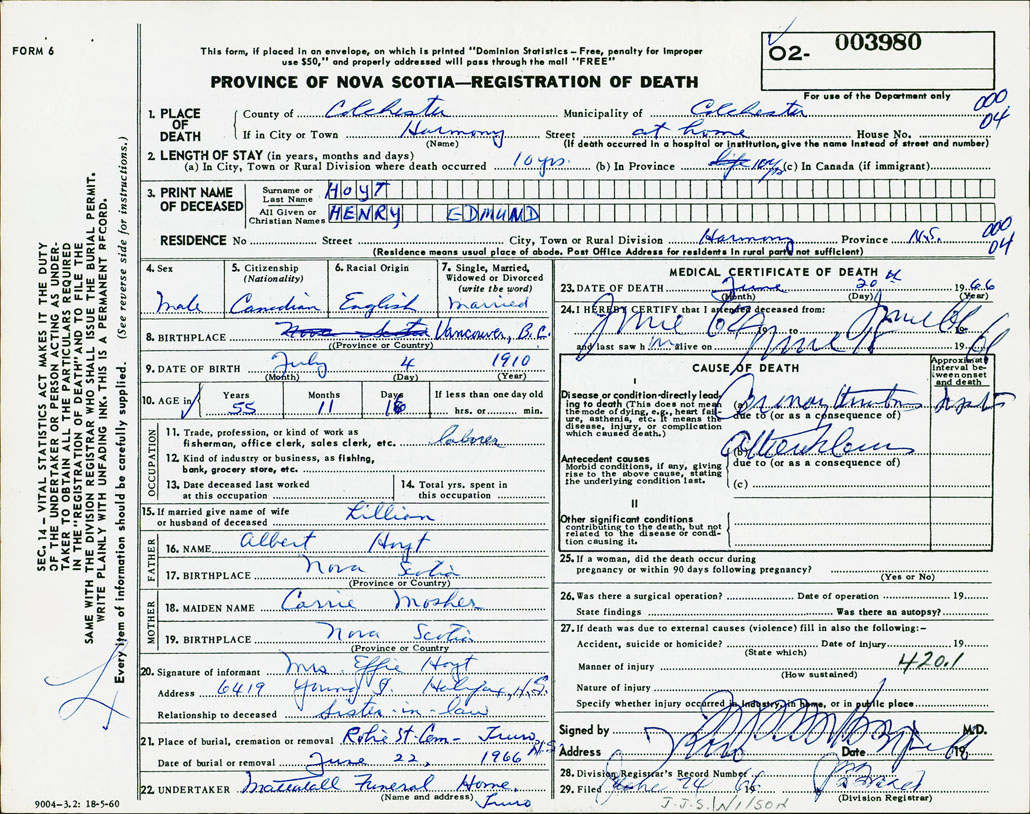 FORM 6
This form, if placed in an envelope, on which is printed "Dominion Statistics – Free, penalty for improper
use $50," and properly addressed will pass through the mail "FREE"
O2- 003980
For use of the Department only
PROVINCE OF NOVA SCOTIA—REGISTRATION OF DEATH
000
04
1. PLACE OF DEATH
County of Colchester Municipality of Colchester
If in City or Town Harmony Street at home House No.
(Name) (If death occurred in a hospital or institution, give the name instead of street and number)
2. LENGTH OF STAY (in years, months and days)
(a) In City, Town or Rural Division where death occurred 10 yrs. (b) In Province life 10 yrs (c) In Canada (if immigrant)
3. PRINT NAME OF DECEASED
Surname or Last Name HOYT
All Given or Christian Names HENRY EDMUND
000
04
RESIDENCE No Street City, Town or Rural Division Harmony Province N.S.
(Residence means usual place of abode. Post Office Address for residents in rural parts not sufficient)
4. Sex
Male
5. Citizenship
(Nationality)
Canadian
6. Racial Origin
English
7. Single, Married,
Widowed or Divorced
(write the word)
Married
8. BIRTHPLACE Nova Scotia Vancouver, B.C.
(Province or Country)
9. DATE OF BIRTH July 4 1910
(Month) (Day) (Year)
10. AGE in
Years 55
Months 11
Days 16
If less than one day old
hrs. or min.
OCCUPATION
11. Trade, profession, or kind of work as
fisherman, office clerk, sales clerk, etc. laborer
12. Kind of industry or business, as fishing,
bank, grocery store, etc.
13. Date deceased last worked
at this occupation
14. Total yrs. spent in
this occupation
15. If married give name of wife
or husband of deceased Lillian
FATHER
16. NAME Albert Hoyt
17. BIRTHPLACE Nova Scotia
(Province or Country)
MOTHER
18. MAIDEN NAME Carrie Mosher
19. BIRTHPLACE Nova Scotia
(Province or Country)
20. Signature of informant Mrs. Effie Hoyt
Address 6419 Young Halifax, N.S.
Relationship to deceased Sister-in-law
21. Place of burial, cremation or removal Robie St. Cem- Truro, N.S.
Date of burial or removal June 22, 1966
22. UNDERTAKER Mattatall Funeral Home,
(Name and address) Truro
MEDICAL CERTIFICATE OF DEATH
23. DATE OF DEATH June 20th 1966
(Month) (Day) (Year)
24. I HEREBY CERTIFY that I attended deceased from:
June 64 19 to June 19
and last saw him alive on June 19
CAUSE OF DEATH
Approximate interval between onset and death
I
Disease or condition directly leading to death (This does not mean
the mode of dying, e.g., heart failure, asthenia, etc. It means the
disease, injury, or complication
which caused death.)
(a) Coronary
due to (or as a consequence of)
Antecedent causes
Morbid conditions, if any, giving
rise to the above cause, stating
the underlying condition last.
(b)
due to (or as a consequence of)
(c)
II
Other significant conditions
contributing to the death, but not
related to the disease or condition causing it.
25. If a woman, did the death occur during
pregnancy or within 90 days following pregnancy?
(Yes or No)
26. Was there a surgical operation? Date of operation 19
State findings Was there an autopsy?
27. If death was due to external causes (violence) fill in also the following:–
Accident, suicide or homicide? Date of injury 19
(State which)
Manner of injury 420.1
(How sustained)
Nature of injury
Specify whether injury occurred in industry, in home, or in public place
Signed by M.D.
Address Truro Date 19
28. Division Registrar's Record Number
29. Filed June 24 1966
(Division Registrar)
J.J.S. WILSON
SEC. 14 – VITAL STATISTICS ACT MAKES IT THE DUTY
OF THE UNDERTAKER OR PERSON ACTING AS UNDERTAKER TO OBTAIN ALL THE PARTICULARS REQUIRED
IN THE "REGISTRATION OF DEATH" AND TO FILE THE
SAME WITH THE DIVISION REGISTRAR WHO SHALL ISSUE THE BURIAL PERMIT.
WRITE PLAINLY WITH UNFADING INK. THIS IS A PERMANENT RECORD.
Every item of information should be carefully supplied. (See reverse side for instructions.)
9004-3.2: 18-5-60